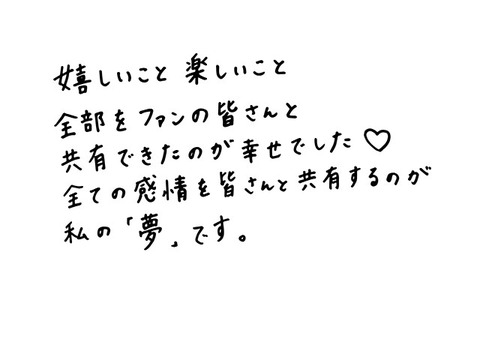 嬉しいこと 楽しいこと
全部をファンの皆さんと
共有できたのが幸せでした♡
全ての感情を皆さんと共有するのが
私の「夢」です。